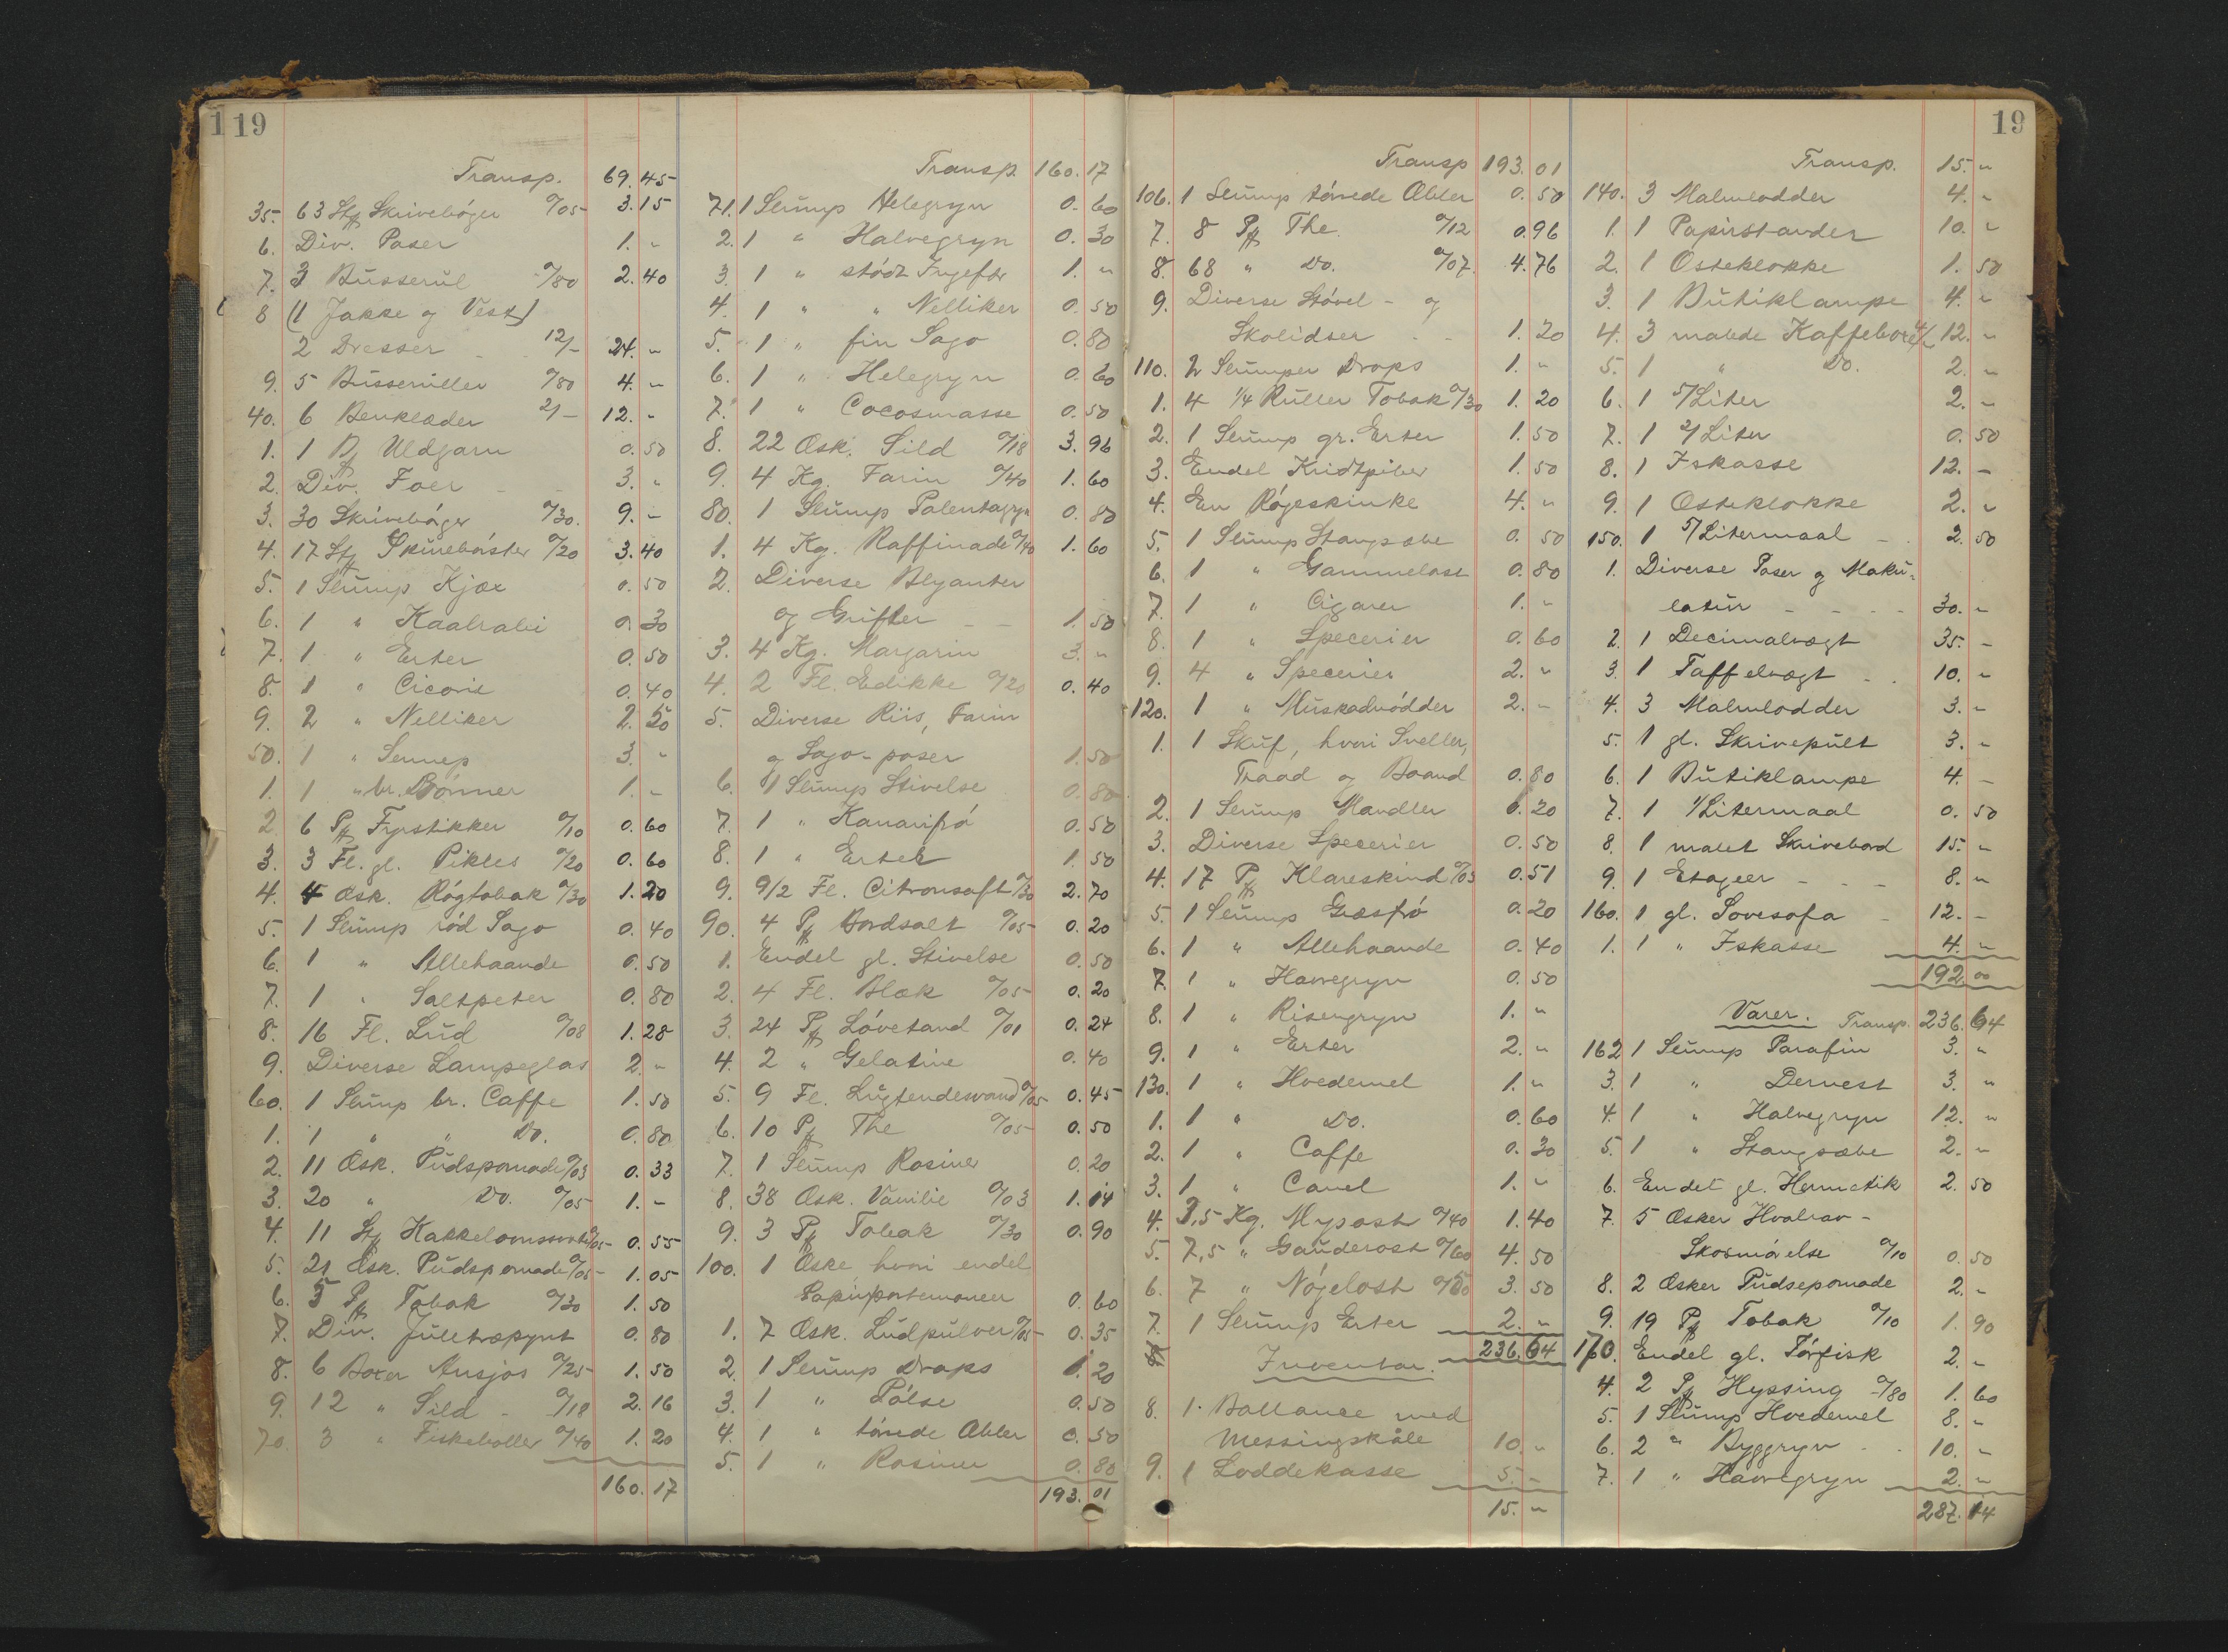 1 19
Transp. 69. 45
35. 63 Stk Skrivebóger %05 3. 15
6. Div. Poser 1. "
7. 3 Busserul %80 2. 40
8 (1 Jakke og Vest)
2 Dresser - 12/- 24. "
9. 5 Busseruller %80 4. "
40. 6 Benklæder 2/- 12. "
1. 1 Pk Uldgarn 0. 50
2. Div. Foer - - 3. "
3. 30 Skrivebóger %30. 9. -
4. 17 Stk Skurebórster %20 3. 40
5. 1 Slump Kjæx 0. 50
6. 1 " Kaalrabi 0. 30
7. 1 " Erter 0. 50
8. 1 " Cicorie 0. 40
9. 2 " Nelliker 2. 50
50. 1 " Sennep 3. "
1. 1 " br. Bónner 1. -
2. 6 Pk Fyrstikker %10 0. 60
3. 3 Fl. gl. Pikles %20 0. 60
4. 4 Æsk. Rógtobak %30 1. 20
5. 1 Slump ród Sago 0. 40
6. 1 " Allehaande 0. 50
7. 1 " Saltpeter 0. 80
8. 16 Fl. Lud %08 1. 28
9. Diverse Lampeglas 2. "
60. 1 Slump br. Caffe 1. 50
1. 1 " " Do. 0. 80
2. 11 Æsk. Pudspomade %03 0. 33
3. 20 " Do. %05 1. -
4. 11 Stk Kakkelovnssverte %05 0. 55
5. 21 Æsk. Pudspomade %05 1. 05
6. 5 Pk Tobak %30 1. 50
7. Div. Juletræpynt 0. 80
8. 6 Boxer Ansjos %25 1. 50
9. 12 " Sild - %18 2. 16
70. 3 " Fiskeboller %40 1. 20
160. 17
Transp. 160. 17
71. 1 Slump Helegryn 0. 60
2. 1 " Halvegryn 0. 30
3. 1 " stódt Ingefær 1. "
4. 1 " " Nelliker 0. 50
5. 1 " fin Sago 0. 80
6. 1 " Helegryn 0. 60
7. 1 " Cocosmasse 0. 50
8. 22 Æsk. Sild %18 3. 96
9. 4 Kg. Farin %40 1. 60
80. 1 Slump Polentagryn 0. 80
1. 4 Kg. Raffinade %40 1. 60
2. Diverse Blyanter
og Grifter - - 1. 50
3. 4 Kg. Margarin 3. "
4. 2 Fl. Edikke %20 0. 40
5. Diverse Riis, Farin
og Sago-poser 1. 50
6. 1 Slump Stivelse 0. 80
7. 1 " Kanarifró 0. 50
8. 1 " Erter 1. 50
9. 9/2 Fl. Citronsaft %30 2. 70
90. 4 Pk Bordsalt %05 0. 20
1. Endel gl. Stivelse 0. 50
2. 4 Fl. Blæk %05 0. 20
3. 24 Pk Lóvetand %01 0. 24
4. 2 " Gelatine 0. 40
5. 9 Fl. Lugtendesvand %05 0. 45
6. 10 Pk The %05 0. 50
7. 1 Slump Rosiner 0. 20
8. 38 Æsk. Vanilie %03 1. 14
9. 3 Pk Tobak %30 0. 90
100. 1 Æske hvori endel
Papirportemoneer 0. 60
1. 7 Æsk. Ludpulver %05 0. 35
2. 1 Slump Drops 1. 20
3. 1 " Pólse 0. 50
4. 1 " tórrede Æbler 0. 50
5. 1 " Rosiner 0. 80
193. 01
19
Transp 193. 01
106. 1 Slump tórrede Æbler 0. 50
7. 8 Pk The %12 0. 96
8. 68 " Do. %07. 4. 76
9. Diverse Stóvel - og
Skolidser - - 1. 20
110. 2 Slumper Drops 1. "
1. 4 1/4 Ruller Tobak %30 1. 20
2. 1 Slump gr. Erter 1. 50
3. Endel Kridtpiber 1. 50
4. En Rógeskinke 4. "
5. 1 Slump Stangsæbe 0. 50
6. 1 " Gammelost 0. 80
7. 1 " Cigarer 1. "
8. 1 " Specerier 0. 60
9. 4 " Specerier 2. "
120. 1 " Muskadnódder 2. -
1. 1 Skuf, hvori Sneller,
Traad og Baand 0. 80
2. 1 Slump Mandler 0. 20
3. Diverse Specerier 0. 50
4. 17 Pk Klareskind %03 0. 51
5. 1 Slump Græsfró 0. 20
6. 1 " Allehaande 0. 40
7. 1 " Havregryn 0. 50
8. 1 " Risengryn 1. "
9. 1 " Erter 2. "
130. 1 " Hvedemel 1. "
1. 1 " Do. 0. 60
2. 1 " Caffe 0. 30
3. 1 " Canel 1. "
4. 3,5 Kg. Mysost %40 1. 40
5. 7,5 " Gauderost %60 4. 50
6. 7 " Nógelost %50 3. 50
7. 1 Slump Erter 2. "
236. 64
Inventar.
8. 1 Ballance med
Messingskåle 10. "
9. 1 Loddekasse 5. -
15. "
Transp. 15. "
140. 3 Malmlodder 4. "
1. 1 Papirstander 10. "
2. 1 Osteklokke 1. 50
3. 1 Butiklampe 4. "
4. 3 malede Kaffeboxe 4/- 12. "
5. 1 " Do. 2. "
6. 1 5/Liter 2. "
7. 1 2/Liter 0. 50
8. 1 Iskasse 12. -
9. 1 Osteklokke 2. "
150. 1 5/Litermaal - . 2. 50
1. Diverse Poser og Maku-
latur - - - - 30. "
2. 1 Decimalvægt 35. -
3. 1 Taffelvægt - . 10. "
4. 3 Malmlodder 3. "
5. 1 gl. Skrivepult 3. "
6. 1 Butiklampe 4. -
7. 1 1/Litermaal 0. 50
8. 1 malet Skrivebord 15. "
9. 1 Etageer - - - 8. "
160. 1 gl. Sovesofa - 12. -
1. 1 " Iskasse 4. "
192. 00
Varer. Transp. 236. 64
162 1 Slump Parafin 3. "
3. 1 " Dervest 3. "
4. 1 " Halvegryn 12. "
5. 1 " Stangsæbe 2. "
6. Endel gl. Hermetik 2. 50
7. 5 Æsker Hvalrav-
Skosmórelse %10 0. 50
8. 2 Æsker Pudsepomade 2. -
9. 19 Pk Tobak %10 1. 90
170. Endel gl. Tórfisk 2. -
4. 2 Pk Hyssing %80 1. 60
5. 1 Slump Hvedemel 8. "
6. 2 " Byggryn - . 10. -
7. 1 " Havregryn 2. "
287. 14